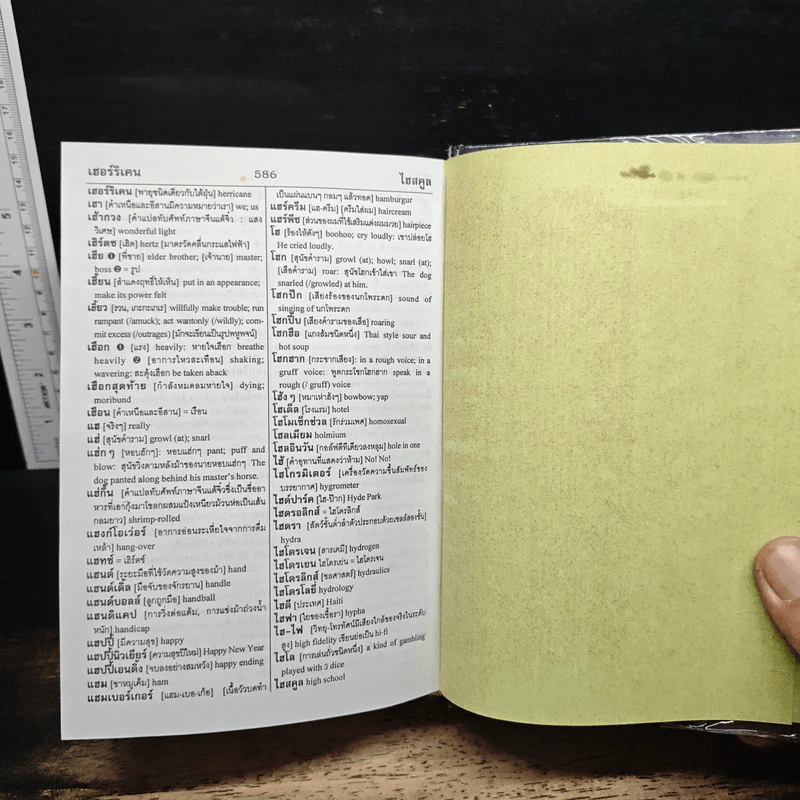 เฮอร์ริเคน 586 ไฮสคูล
เฮอร์ริเคน [พายุชนิดเดียวกับไต้ฝุ่น] herricane
เฮา [คำเหนือและอีสานมีความหมายว่าเรา] we; us
เฮ้ากวง [คำแปลทับศัพท์ภาษาจีนแต้จิ๋ว : แสง
วิเศษ] wonderful light
เฮิร์ตซ [เฮิด] hertz [มาตรวัดคลื่นกระแสไฟฟ้า]
เฮีย ❶ [พี่ชาย] elder brother; [เจ้านาย] master;
boss ❷ = รูป
เฮี้ยน [สำแดงฤทธิ์ให้เห็น] put in an appearance;
make its power felt
เฮี้ยว [รวน, เกะกะเกเร] willfully make trouble; run
rampant (/amuck); act wantonly (/wildly); com-
mit excess (/outrages) [มักจะเขียนเป็นรูปพหูพจน์]
เฮือก ❶ [แรง] heavily: หายใจเฮือก breathe
heavily ❷ [อาการไหวสะเทือน] shaking;
wavering: สะดุ้งเฮือก be taken aback
เฮือกสุดท้าย [กำลังหมดลมหายใจ] dying;
moribund
เฮือน [คำเหนือและอีสาน] = เรือน
แฮ [จริงๆ] really
แฮ่ [สุนัขคำราม] growl (at); snarl
แฮ่ก ๆ [หอบฮักๆ]: หอบแฮ่กๆ pant; puff and
blow: สุนัขวิ่งตามหลังม้าของนายหอบแฮ่กๆ The
dog panted along behind his master's horse.
แฮ่กึ๊น [คำแปลทับศัพท์ภาษาจีนแต้จิ๋วซึ่งเป็นชื่ออา
หารที่เอากุ้งมาโขลกผสมแป้งเหนียวม้วนห่อเป็นเส้น
กลมยาว] shrimp-rolled
แฮงก์โอเว่อร์ [อาการอ่อนระเหี่ยใจจากการดื่ม
เหล้า] hang-over
แฮทซ์ = เฮิรตซ์
แฮนด์ [ระยะมือที่ใช้วัดความสูงของม้า] hand
แฮนด์เดิ้ล [มือจับของจักรยาน] handle
แฮนด์บอลล์ [ลูกถูกมือ] handball
แฮนดิแคป [การวิ่งต่อแต้ม, การแข่งม้าถ่วงน้ำ
หนัก] handicap
แฮปปี้ [มีความสุข] happy
แฮปปี้นิวเยียร์ [ความสุขปีใหม่] Happy New Year
แฮปปี้เอนดิ้ง [จบลงอย่างสมหวัง] happy ending
แฮม [ขาหมูเค็ม] ham
แฮมเบอร์เกอร์ [แฮม-เบอ-เก้อ] [เนื้อวัวบดทำ
เป็นแผ่นแบนๆ กลมๆ แล้วทอด] hamburgur
แฮร์ครีม [แฮ-ครีม] [ครีมใส่ผม] haircream
แฮร์พีช [ส่วนของผมที่ใช้เสริมแต่งผมมวย] hairpiece
โฮ [ร้องไห้ดังๆ] boohoo; cry loudly: เขาปล่อยโฮ
He cried loudly.
โฮก [สุนัขคำราม] growl (at); howl; snarl (at);
[เสือคำราม] roar: สุนัขโฮกเข้าใส่เขา The dog
snarled (/growled) at him.
โฮกปีก [เสียงร้องของนกโพระดก] sound of
singing of นกโพระดก
โฮกปี๊บ [เสียงคำรามของเสือ] roaring
โฮกฮือ [แกงส้มชนิดหนึ่ง] Thai style sour and
hot soup
โฮกฮาก [กระชากเสียง]: in a rough voice; in a
gruff voice: พูดกระโชกโฮกฮาก speak in a
rough (/ gruff) voice
โฮ้ง ๆ [หมาเห่าฮ้งๆ] bowbow; yap
โฮเต็ล [โรงแรม] hotel
โฮโมเซ็กช่วล [รักร่วมเพศ] homosexual
โฮลเมียม holmium
โฮลอินวัน [กอล์ฟตีทีเดียวลงหลุม] hole in one
ไฮ้ [คำอุทานที่แสดงว่าห้าม] No! No!
ไฮโกรมิเตอร์ [เครื่องวัดความชื้นสัมพัทธ์ของ
บรรยากาศ] hygrometer
ไฮด์ปาร์ค [ไฮ-ป๊าก] Hyde Park
ไฮดรอลิกส์ = ไฮโดรลิกส์
ไฮดรา [สัตว์ชั้นต่ำลำตัวประกอบด้วยเซลล์สองชั้น]
hydra
ไฮโดรเจน [สารเคมี] hydrogen
ไฮโดรเยน ไฮโดรเย่น = ไฮโดรเจน
ไฮโดรลิกส์ [ชลศาสตร์] hydraulics
ไฮโดรโลยี่ hydrology
ไฮตี [ประเทศ] Haiti
ไฮฟา [ใยของเชื้อรา] hypha
ไฮ-ไฟ [วิทยุ-โทรทัศน์มีเสียงใกล้ของจริงในระดับ
สูง] high fidelity เขียนย่อเป็น hi-fi
ไฮโล [การเล่นถั่วชนิดหนึ่ง] a kind of gambling
played with 3 dice
ไฮสคูล high school